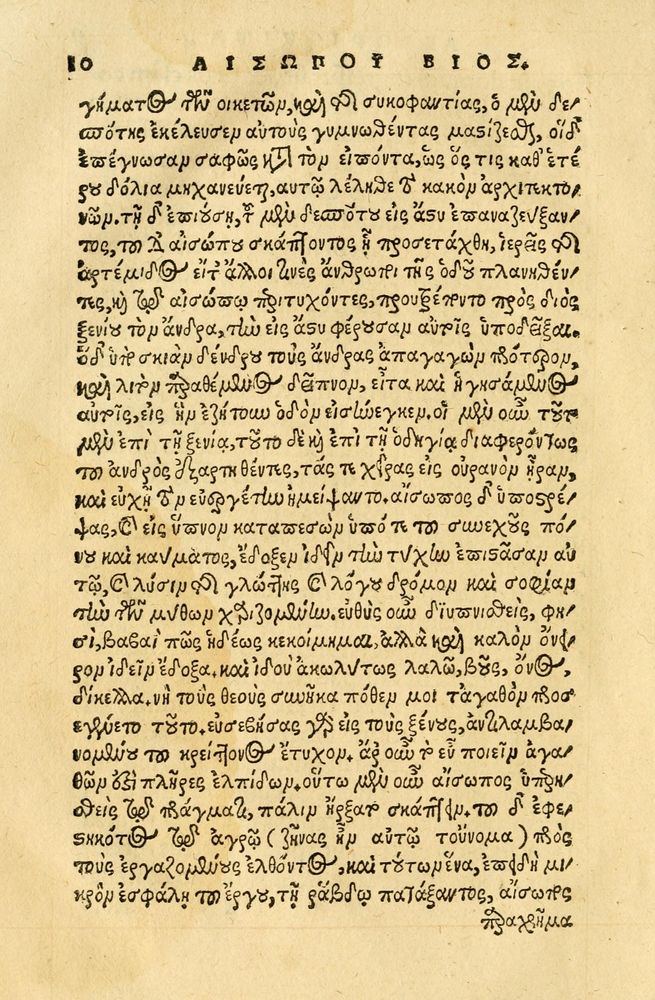 10 ΑΙΣΩΠΟΥ ΒΙΟΣ.
γήματος τῶν οἰκετῶν, καὶ τῆς συκοφαντίας, ὁ μὲν δε/
σπότης ἐκέλευσεν αὐτοὺς γυμνωθέντας μαστίζεσθαι, οἱ δ'
ἐπέγνωσαν σαφῶς κατὰ τὸν εἰπόντα, ὡς ὅς τις καθ' ἑτέ
ρου δόλια μηχανεύεται, αὐτῷ λέληθε τὸν κακὸν ἀρχιτεκτο/
νῶν. τῇ δ' ἐπιούσῃ, τοῦ μὲν δεσπότου εἰς ἄστυ ἐπαναζεύξαν/
τος, τοῦ δ' αἰσώπου σκάπτοντος ᾗ προσετάχθη, ἱερεῖς τῆς
ἀρτέμιδος εἴτ' ἄλλοι τινὲς ἄνθρωποι τῆς ὁδοῦ πλανηθέν/
τες, καὶ τῷ αἰσώπῳ περιτυχόντες, προυτρέποντο πρὸς διὸς
ξενίου τὸν ἄνδρα, τὴν εἰς ἄστυ φέρουσαν αὐτοῖς ὑποδεῖξαι.
ὁ δ' ὑπὸ σκιὰν δένδρου τοὺς ἄνδρας ἀπαγαγὼν πρότερον,
καὶ λιτὸν παραθέμενος δεῖπνον, εἶτα καὶ ἡγησάμενος
αὐτοῖς, εἰς ἣν ἐζήτουν ὁδὸν εἰσήνεγκεν. οἱ μὲν οὖν τοῦτο
μὲν ἐπὶ τῇ ξενίᾳ, τοῦτο δὲ καὶ ἐπὶ τῇ ὁδηγίᾳ διαφερόντως
τοῦ ἀνδρὸς ἐξαρτηθέντες, τάς τε χεῖρας εἰς οὐρανὸν ἦραν,
καὶ εὐχῇ τὸν εὐεργέτην ἠμείψαντο. αἴσωπος δ' ὑποστρέ/
ψας, καὶ εἰς ὕπνον καταπεσὼν ὑπό τε τοῦ συνεχοῦς πό/
νου καὶ καύματος, ἔδοξεν ἰδεῖν τὴν τύχην ἐπιστᾶσαν αὐ
τῷ, καὶ λύσιν τῆς γλώττης καὶ λόγου δρόμον καὶ σοφίαν
τὴν τῶν μύθων χαριζομένην. εὐθὺς οὖν διυπνισθεὶς, φη/
σὶ, βαβαὶ πῶς ἡδέως κεκοίμημαι, ἀλλὰ καὶ καλὸν ὄνει/
ρον ἰδεῖν ἔδοξα. καὶ ἰδοὺ ἀκωλύτως λαλῶ, βοῦς, ὄνος,
δίκελλα. νὴ τοὺς θεοὺς συνῆκα πόθεν μοι τἀγαθὸν προσ
εγένετο τοῦτο. εὐσεβήσας γὰρ εἰς τοὺς ξένους, ἀντιλαμβα/
νομένου τοῦ κρείττονος ἔτυχον. ἆρ' οὖν τὸ εὖ ποιεῖν ἀγα/
θῶν ἐστὶ πλῆρες ἐλπίδων. οὕτω μὲν οὖν αἴσωπος ὑπερη/
σθεὶς τῷ πράγματι, πάλιν ἤρξατο σκάπτειν. τοῦ δ' ἐφε/
στηκότος τῷ ἀγρῷ (ζηνᾶς ἦν αὐτῷ τοὔνομα) πρὸς
τοὺς ἐργαζομένους ἐλθόντος, καὶ τούτων ἕνα, ἐπειδὴ μι/
κρὸν ἐσφάλη τοῦ ἔργου, τῇ ῥάβδῳ πατάξαντος, αἴσωπος
παραχρῆμα